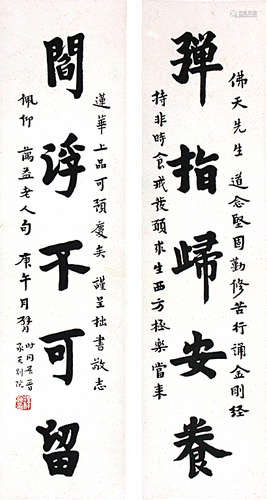 佛天先生 道念堅固勤修苦行誦金剛經
彈指歸安養
持非時食戒發願求生西方極樂當來
蓮華上品可預慶矣 謹呈拙書敬志
閻浮不可留
佩仰 蕅益老人句 庚午月
時同居晉
承天別院